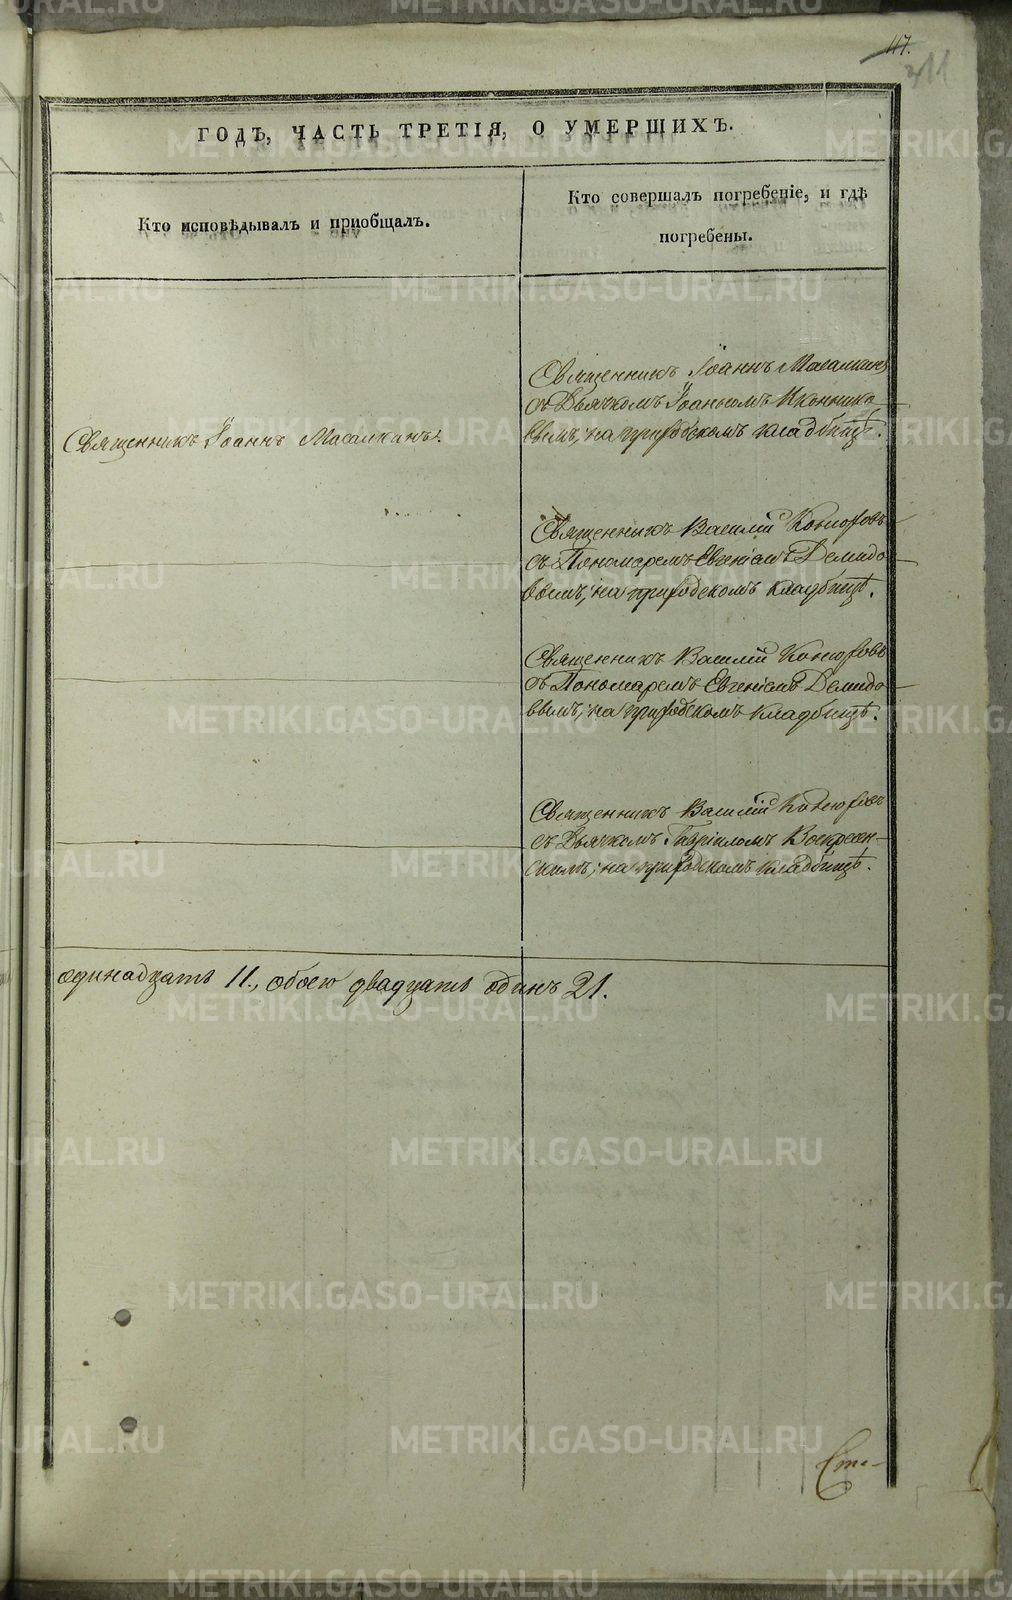 117.
311
ГОДЪ, ЧАСТЬ ТРЕТІЯ, О УМЕРШИХЪ.
Кто исповѣдывалъ и пріобщалъ.
Кто совершалъ погребеніе, и гдѣ
погребены.
Священникъ Іоаннъ Масалкинъ
съ Дьячкомъ Іоанномъ Иконнико
вымъ; на приходскомъ кладбищѣ.
Священникъ Іоаннъ Масалкинъ.
Священникъ Василій
съ Пономаремъ Евгеніемъ Демидо
вымъ; на приходскомъ кладбищѣ.
Священникъ Василій
съ Пономаремъ Евгеніемъ Демидо
вымъ; на приходскомъ кладбищѣ.
Священникъ Василій
съ Дьячкомъ Гавріиломъ Воскресен-
скимъ; на приходскомъ кладбищѣ.
одинадцать 11., обоего двадцать одинъ 21.
METRIKI.GASO-URAL.RU